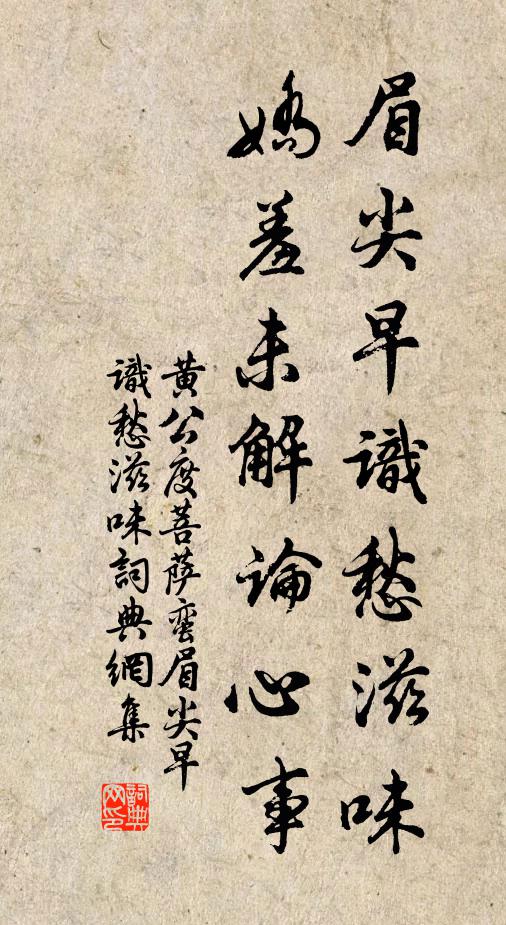 眉尖早識愁滋味
嬌羞未解論心事
黄公度菩萨蛮眉尖早
識愁滋味詞典網集
詞典
网印